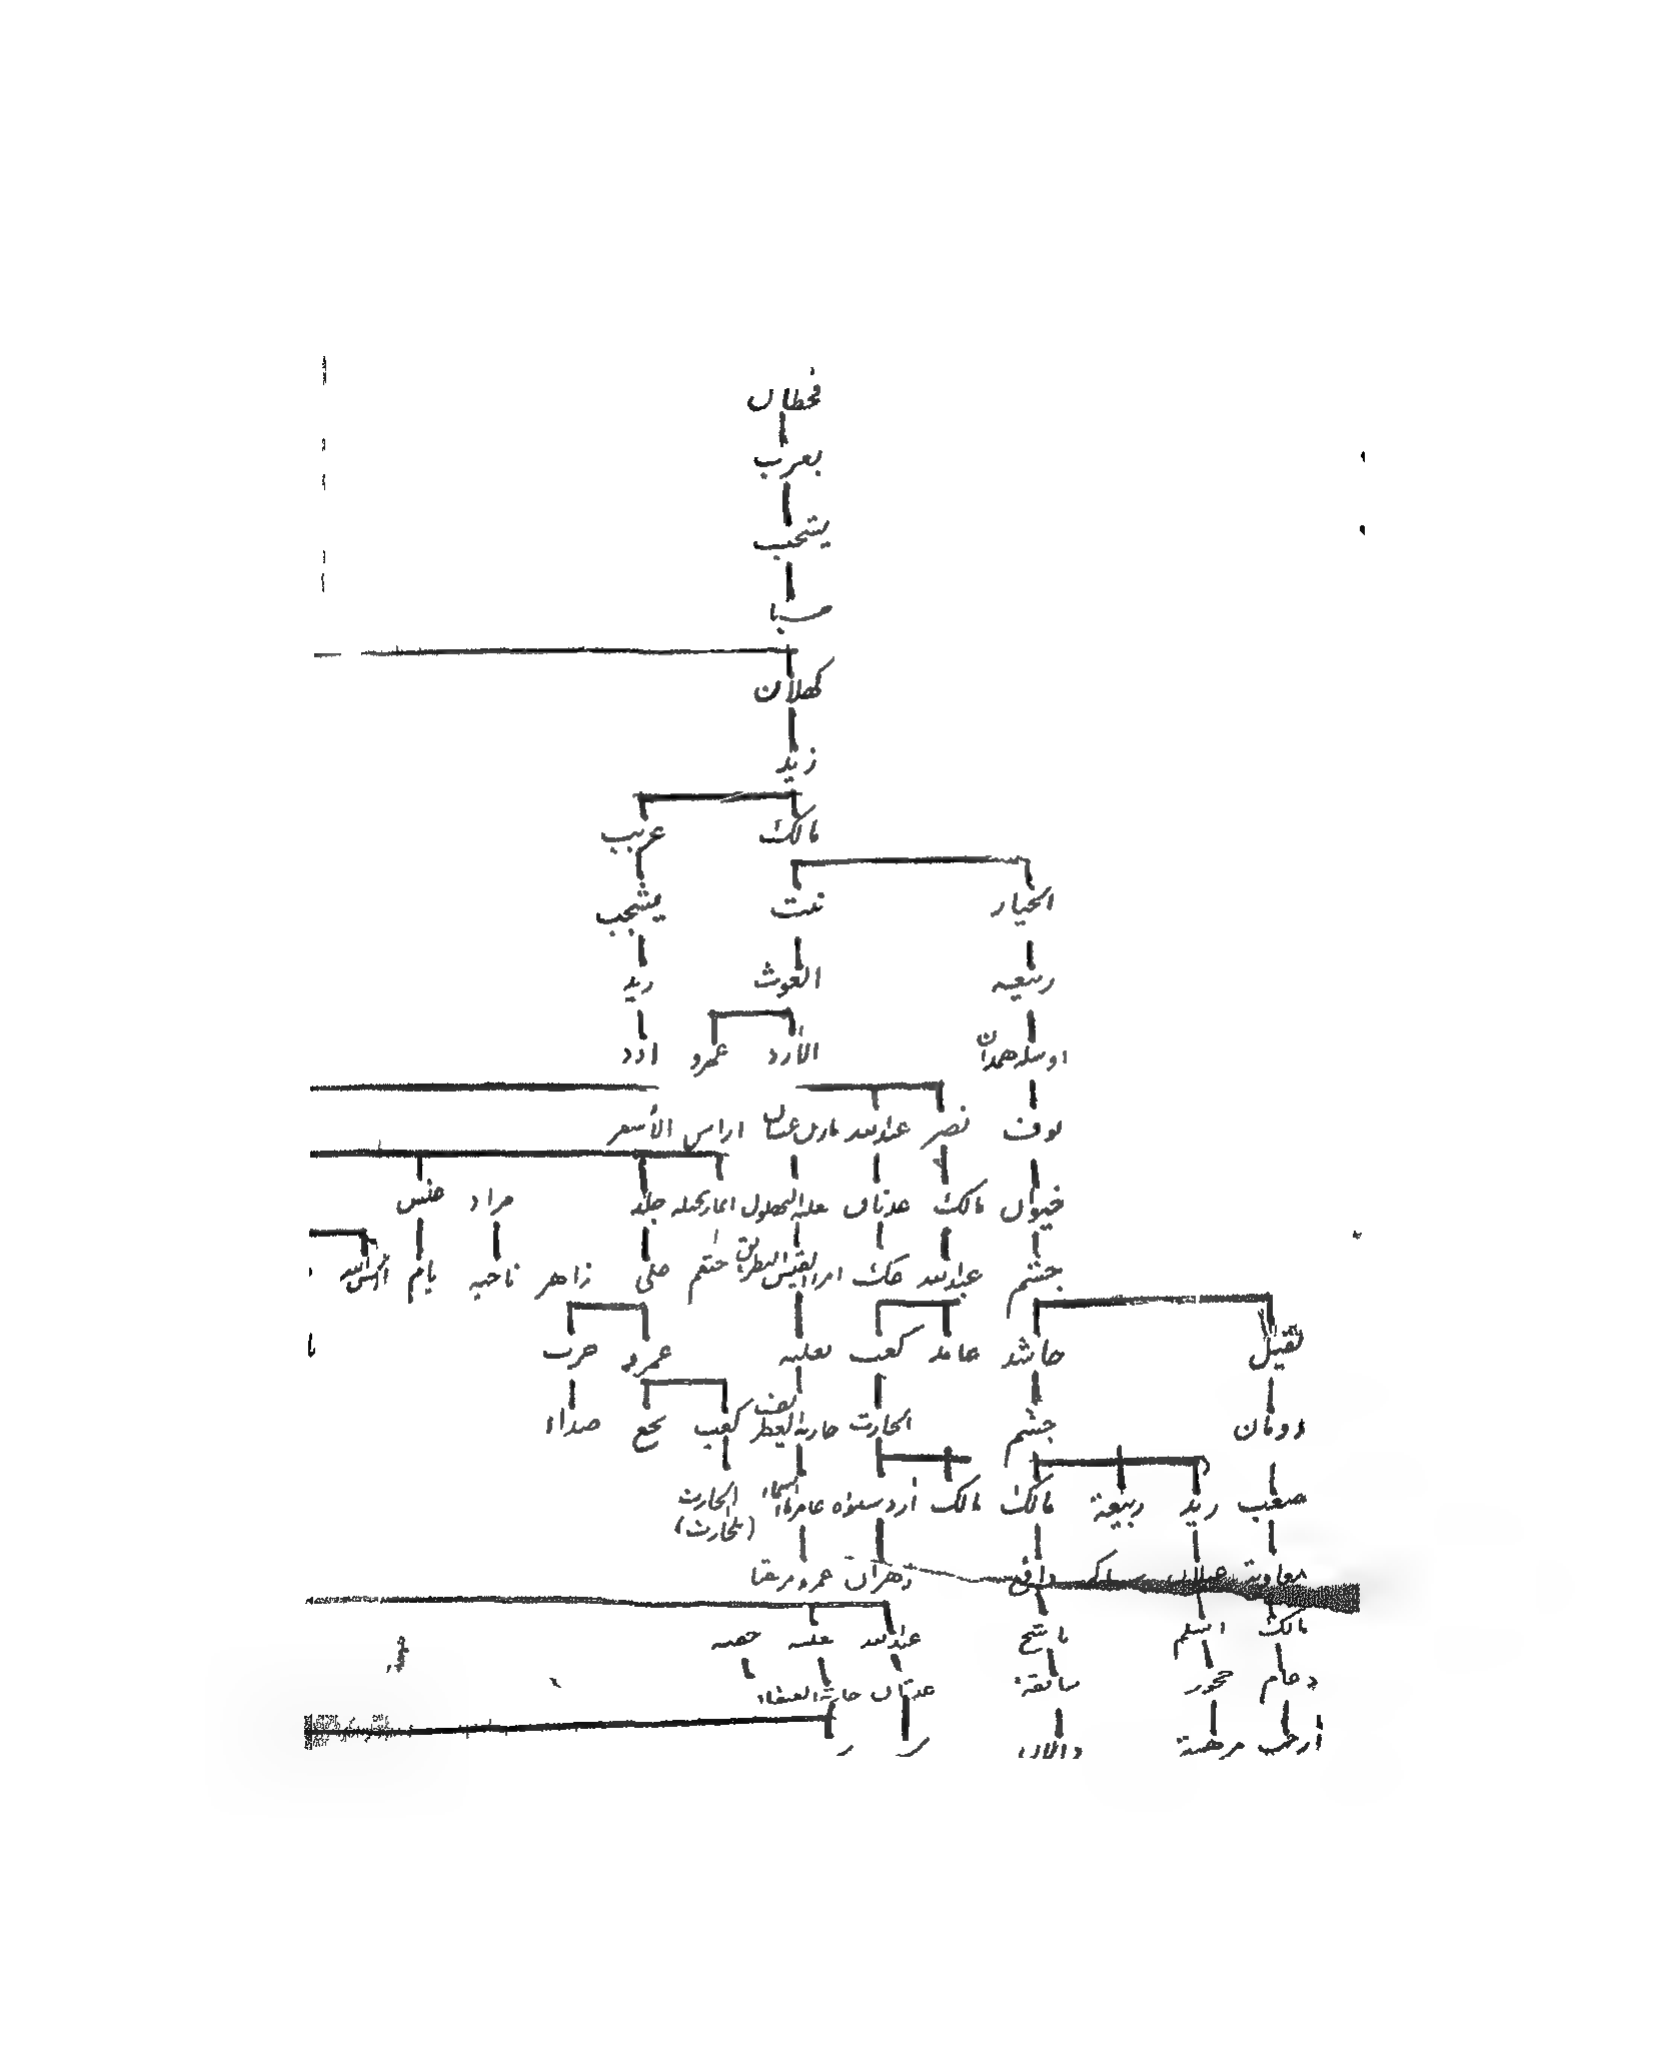 قحطان
يعرب
يشجب
سبا
كهلان
زيد
مالك عريب
الخيار نبت يشجب
ربيعه الغوث زيد
اوسله همدان الأزد عمرو ادد
نوف نصر عبدالله مازن غسان اراس الأسعر
خيوان مالك عدنان البهلول انمار بجيله جلد مراد عنس
جشم عبدالله عك امرا القيس البطريق ختعم على زاهر ناحيه يام
بقيل حاشد عامد كعب ثعلبه عمرو حرب
دومان جشم الحارث حارثه الغطريف كعب نخع صداء
صعب زيد ربيعة مالك مالك أزد سنؤه عامر ماء السماء الحارث
(بلحارث)
معاوية دافع دهران عمرو مزيقيا
مالك اسلم ماشح عبدالله
دعام حجور عدنان حارثة العنقاء
أرحب مرهبة دالان